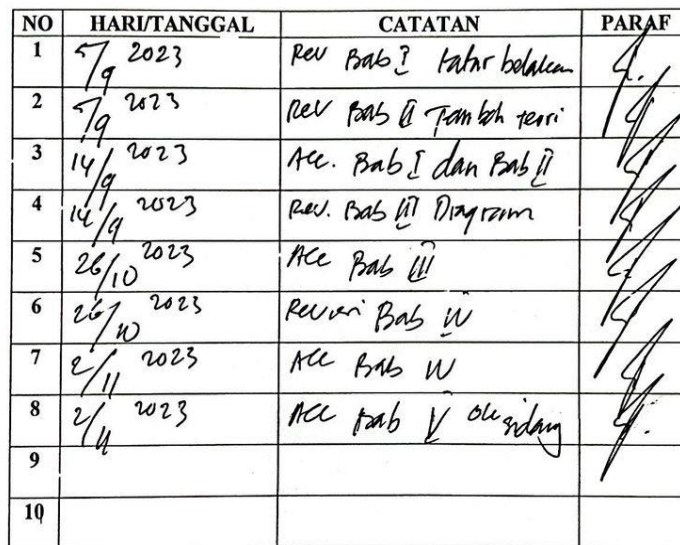 NO HARI/TANGGAL CATATAN PARAF
1 5/9 2023 Rev Bab I latar belakan
2 5/9 2023 Rev Bab II Tambah teori
3 14/9 2023 Acc. Bab I dan Bab II
4 14/9 2023 Rev. Bab III Diagram
5 26/10 2023 Acc Bab III
6 26/10 2023 Revisi Bab IV
7 2/11 2023 Acc Bab IV
8 2/11 2023 Acc Bab V sidang
9
10